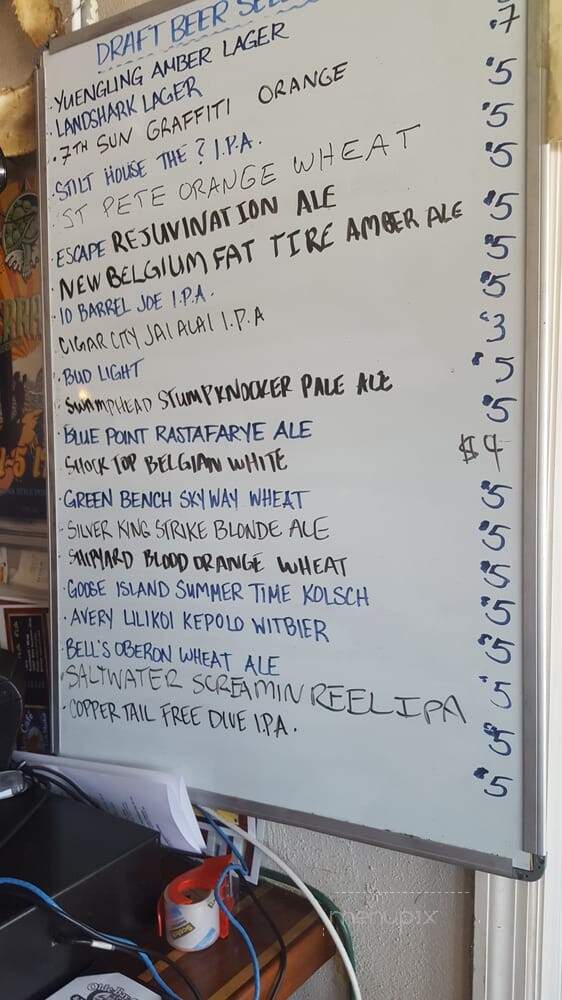 DRAFT BEER
·YUENGLING AMBER LAGER
·LANDSHARK LAGER
·7TH SUN GRAFFITI ORANGE $7
·STILT HOUSE THE ? I.P.A. $5
·ST PETE ORANGE WHEAT $5
·ESCAPE REJUVINATION ALE $5
·NEW BELGIUM FAT TIRE AMBER ALE $5
·10 BARREL JOE I.P.A. $5
·CIGAR CITY JAI ALAI I.P.A $5
·BUD LIGHT $3
·SWAMPHEAD STUMPKNOCKER PALE ALE $5
·BLUE POINT RASTAFARYE ALE $5
·SHOCK TOP BELGIAN WHITE $4
·GREEN BENCH SKYWAY WHEAT $5
·SILVER KING STRIKE BLONDE ALE $5
·SHIPYARD BLOOD ORANGE WHEAT $5
·GOOSE ISLAND SUMMER TIME KOLSCH $5
·AVERY LILIKOI KEPOLO WITBIER $5
·BELL'S OBERON WHEAT ALE $5
·SALTWATER SCREAMIN REEL IPA $5
·COPPER TAIL FREE DIVE I.P.A. $5
Scotch
menupix